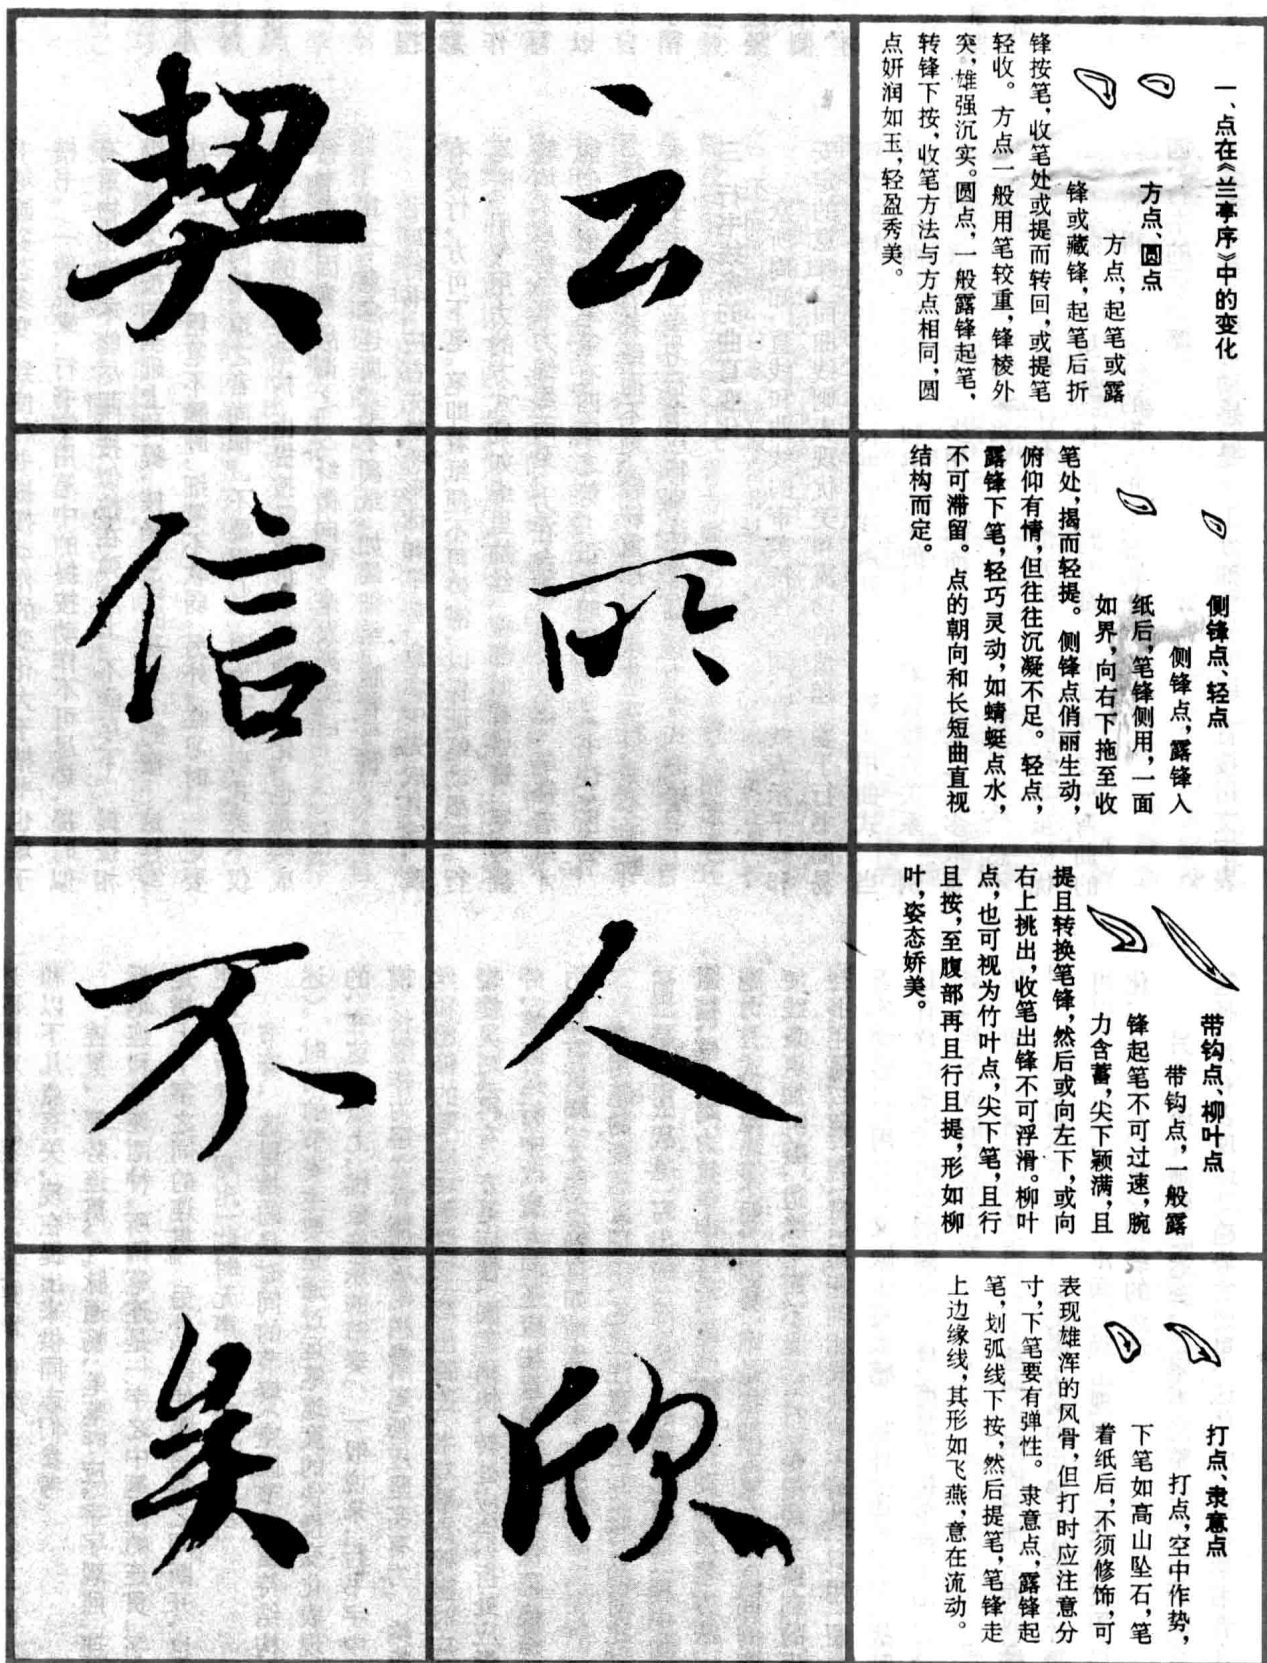 一、点在《兰亭序》中的变化
方点、圆点
方点，起笔或露
锋或藏锋，起笔后折
锋按笔，收笔处或提而转回，或提笔
轻收。方点一般用笔较重，锋棱外
突，雄强沉实。圆点，一般露锋起笔，
转锋下按，收笔方法与方点相同，圆
点妍润如玉，轻盈秀美。
云
契
侧锋点、轻点
侧锋点，露锋入
纸后，笔锋侧用，一面
如界，向右下拖至收
笔处，揭而轻提。侧锋点俏丽生动，
俯仰有情，但往往沉凝不足。轻点，
露锋下笔，轻巧灵动，如蜻蜓点水，
不可滞留。点的朝向和长短曲直视
结构而定。
所
信
带钩点、柳叶点
带钩点，一般露
锋起笔不可过速，腕
力含蓄，尖下颖满，且
提且转换笔锋，然后或向左下，或向
右上挑出，收笔出锋不可浮滑。柳叶
点，也可视为竹叶点，尖下笔，且行
且按，至腹部再且行且提，形如柳
叶，姿态娇美。
人
不
打点、隶意点
打点，空中作势，
下笔如高山坠石，笔
着纸后，不须修饰，可
表现雄浑的风骨，但打时应注意分
寸，下笔要有弹性。隶意点，露锋起
笔，划弧线下按，然后提笔，笔锋走
上边缘线，其形如飞燕，意在流动。
欣
矣